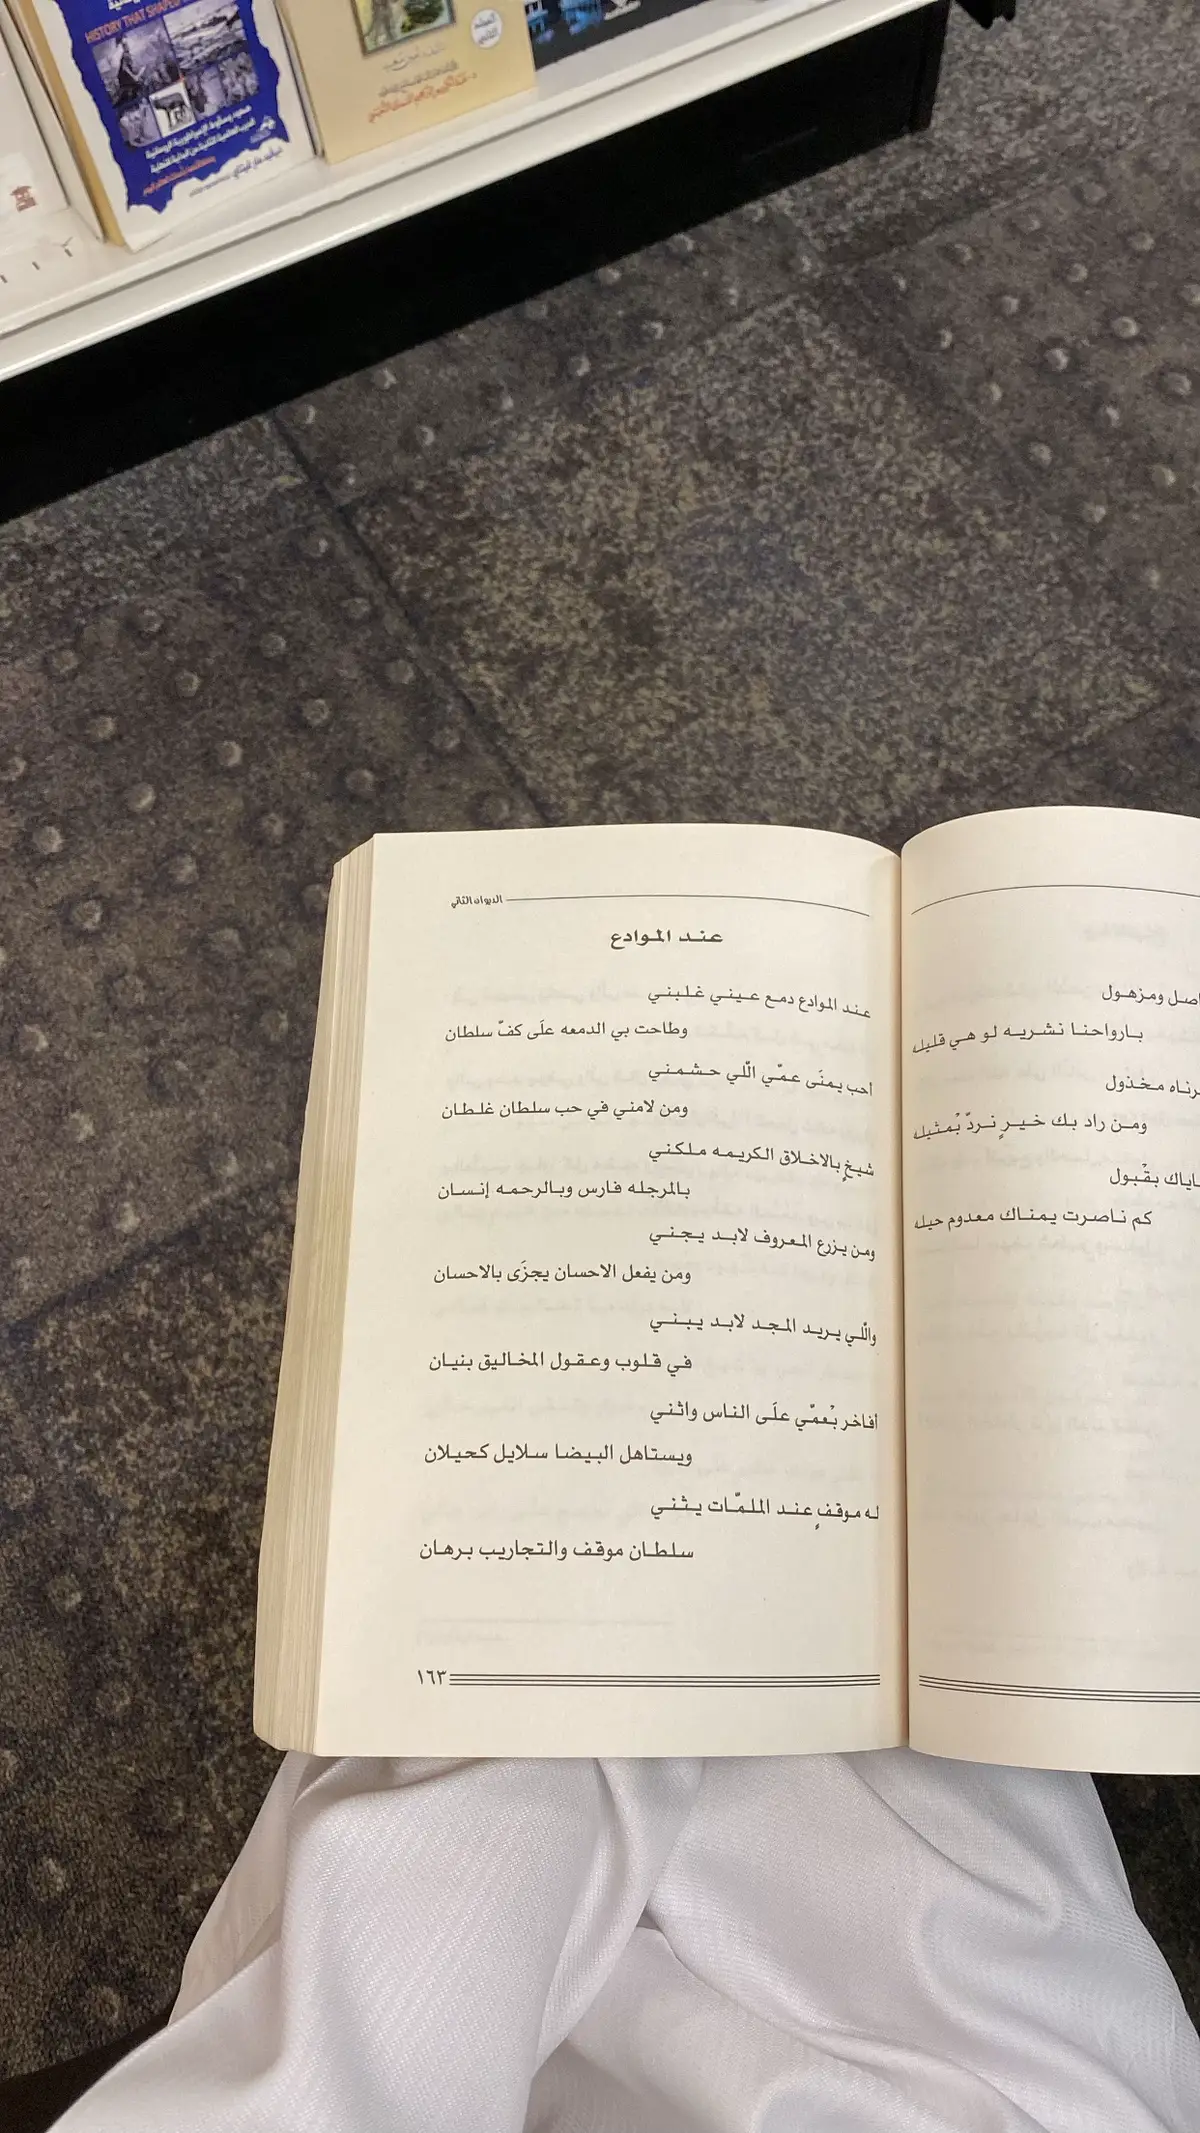 HISTORY THAT SHAPED
الديوان الثاني
عند الموادع
عند الموادع دمع عيني غلبني
وطاحت بي الدمعه علَى كفّ سلطان
احب يمنَى عمّي الّلي حشمني
ومن لامني في حب سلطان غلطان
شيخٍ بالاخلاق الكريمه ملكني
بالمرجله فارس وبالرحمه إنسان
ومن يزرع المعروف لابد يجني
ومن يفعل الاحسان يجزَى بالاحسان
والّلي يريد المجد لابد يبني
في قلوب وعقول المخاليق بنيان
أفاخر بْعمّي علَى الناس واثني
ويستاهل البيضا سلايل كحيلان
له موقفٍ عند الملمّات يثني
سلطان موقف والتجاريب برهان
١٦٣
ومزهول
بارواحنا نشريه لو هي قليله
مخذول
ومن راد بك خيرٍ نردّ بْمثيله
بقْبول
كم ناصرت يمناك معدوم حيله